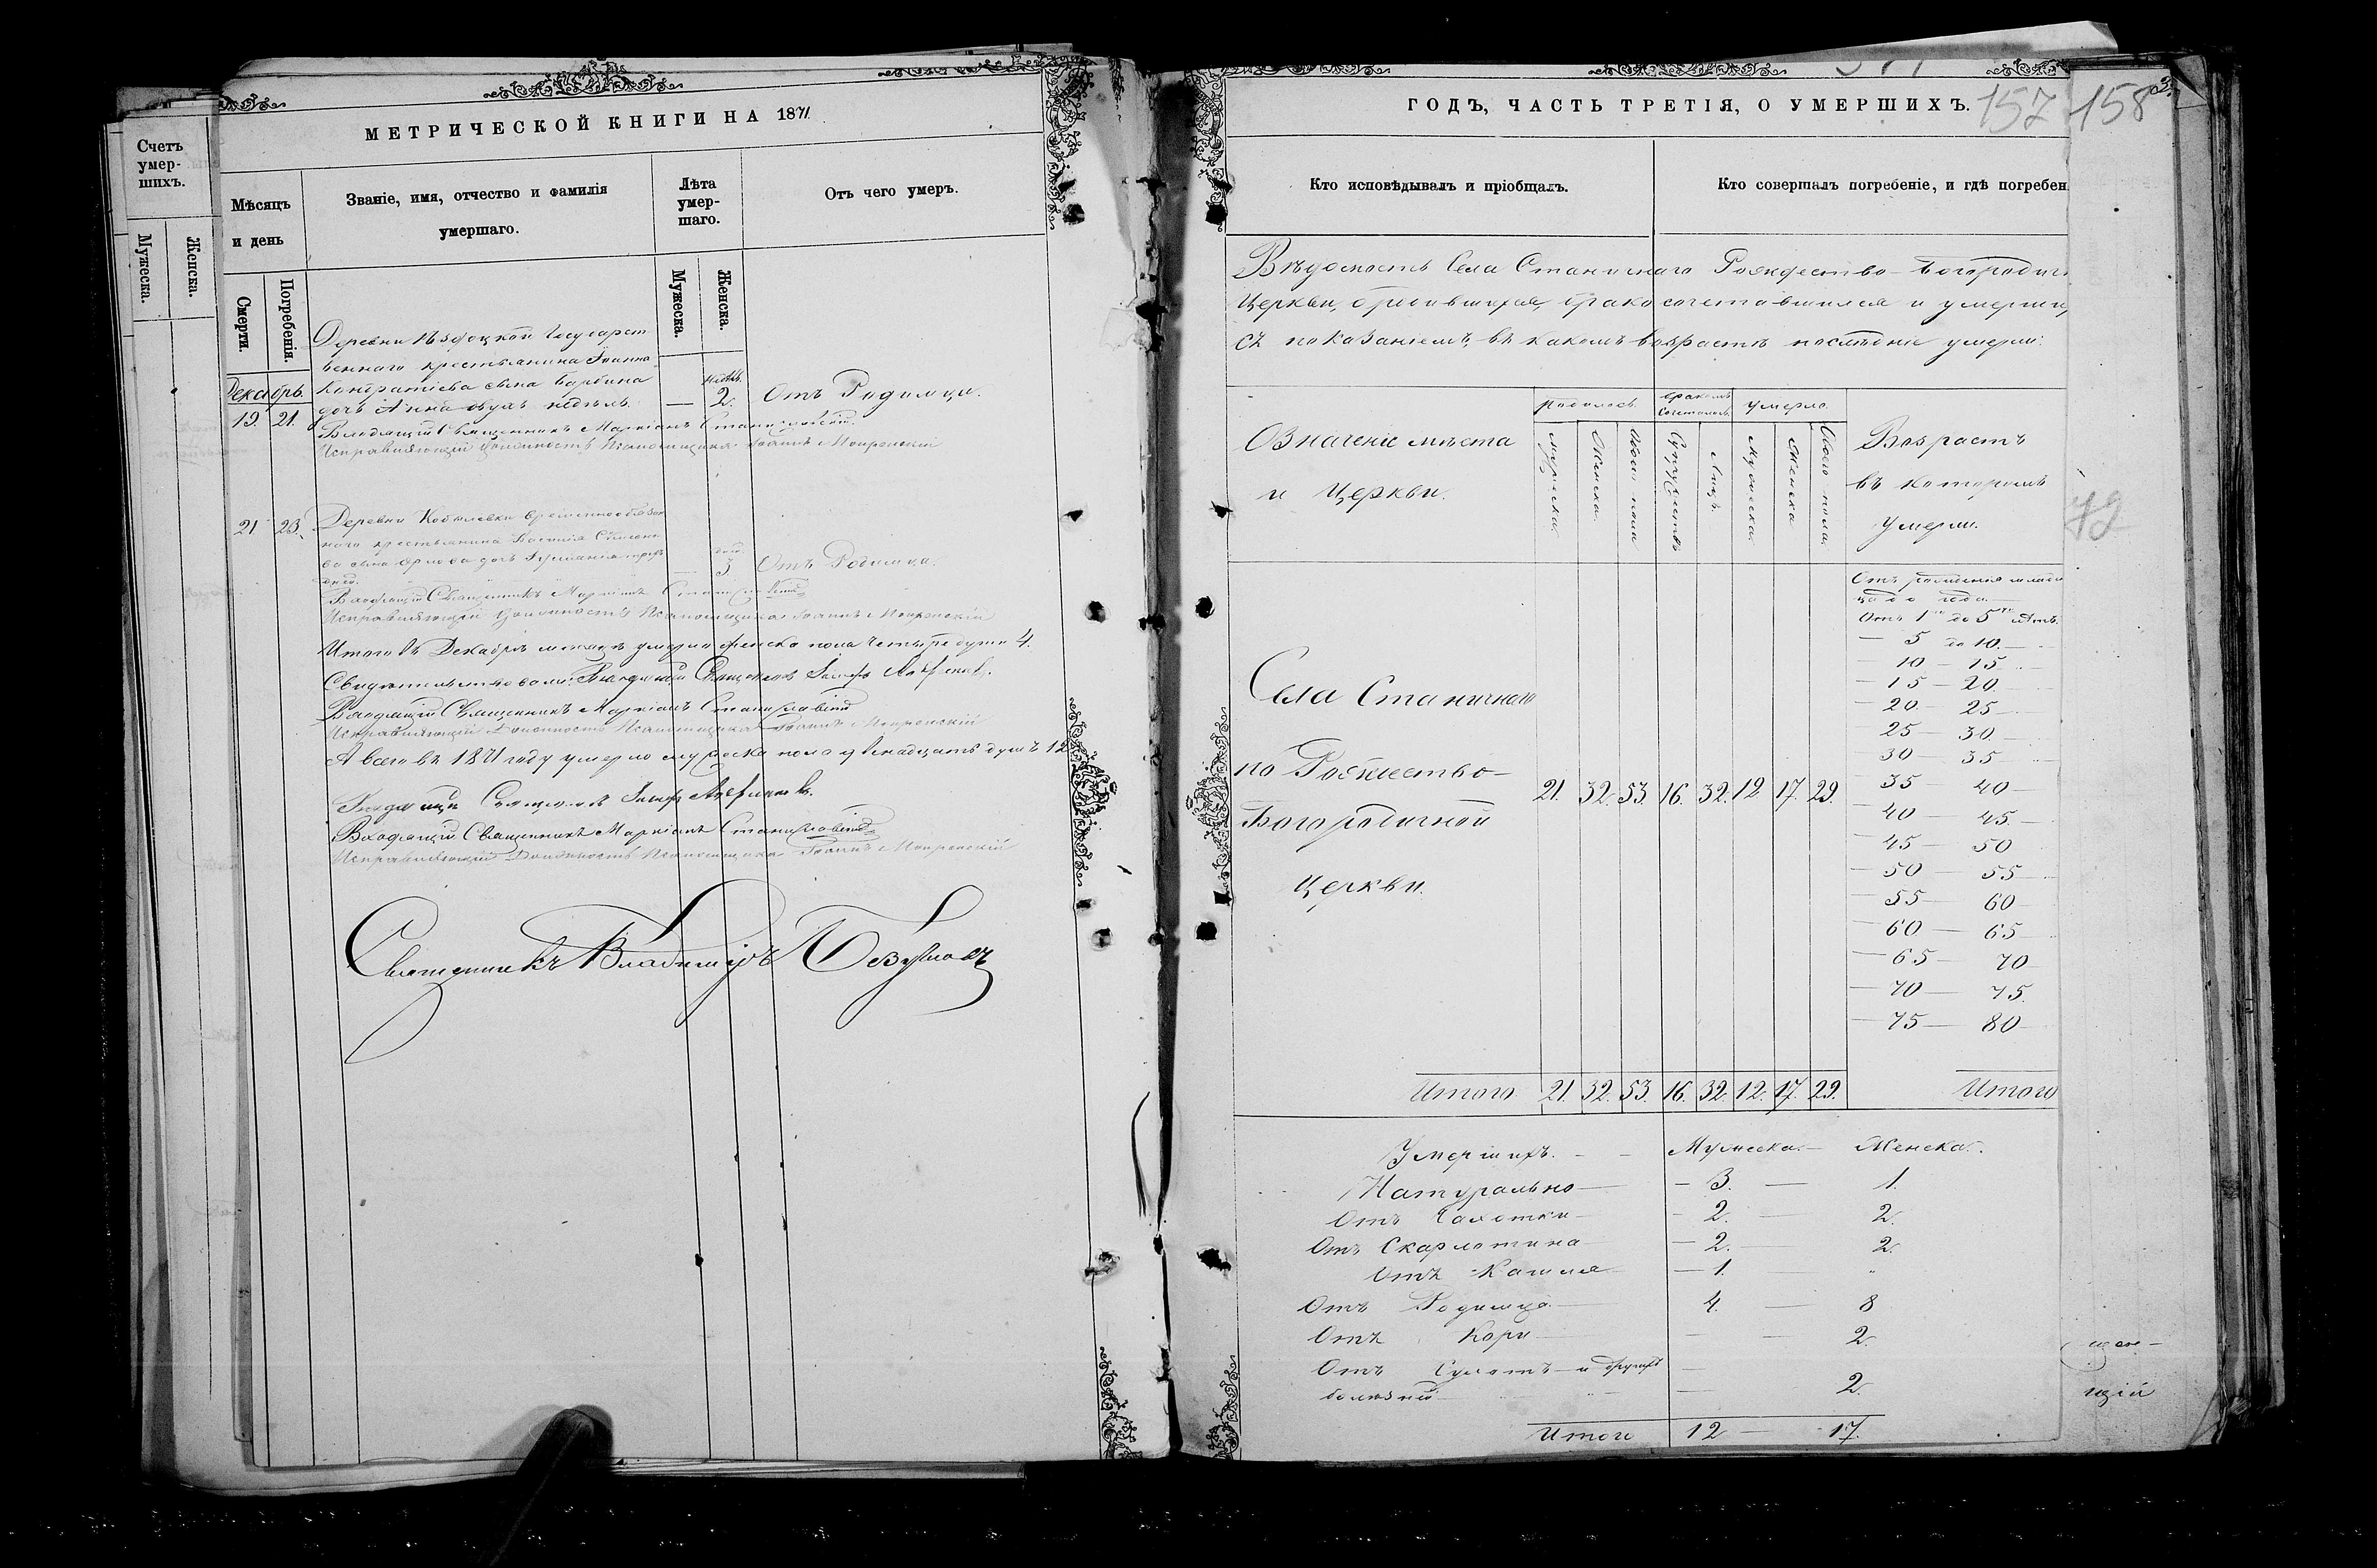 МЕТРИЧЕСКОЙ КНИГИ НА 1871
Счетъ умер-шихъ.
Мужеска.
Женска.
Мѣсяцъ и день
Смерти.
Погребенія.
Званіе, имя, отчество и фамилія умершаго.
Лѣта умер-шаго.
Мужеска.
Женска.
Отъ чего умеръ.
Деревни Государст
веннаго крестьянина Іоанна
Декабрь. Кондратіева сына
19. 21. дочь Анна двухъ недѣль — недѣл. 2. Отъ Родимца.
Входящій Священникъ Маркіанъ Станиславскій
Исправляющій Должность Псаломщика Іоаннъ
21 23. Деревни Кобылевки временнообязан
наго крестьянина Василія
ва сына дочь трехъ — дней 3 Отъ Родимца.
дней.
Входящій Священникъ Маркіанъ Станиславскій
Исправляющій Должность Псаломщика Іоаннъ
Итого въ Декабрѣ мѣсяцѣ умерло женска пола четыре души 4.
Свидѣтельствовали:
Входящій Священникъ Маркіанъ Станиславскій
Исправляющій Должность Псаломщика Іоаннъ
А всего въ 1871 году умерло мужеска пола двѣнадцать душъ 12
Входящій Священникъ Маркіанъ Станиславскій
Исправляющій Должность Псаломщика Іоаннъ
Священникъ Владиміръ
ГОДЪ, ЧАСТЬ ТРЕТІЯ, О УМЕРШИХЪ.
157 158
Кто исповѣдывалъ и пріобщалъ.
Кто совершалъ погребеніе, и гдѣ погребен
Вѣдомость Села Станичнаго Рождество-Богородич
Церкви, о родившихся, бракосочетавшихся и умершихъ,
съ показаніемъ, въ какомъ возрастѣ послѣдніе умерли.
Означеніе мѣста
и Церкви.
родилось.
Мужеска.
Женска.
Обоего пола
бракомъ сочеталось
Супружествъ
Лицъ.
умерло.
Мужеска.
Женска
Обоего пола.
Возрастъ
въ которомъ
умерли.
72
Отъ рожденія
до года —
Отъ 1го до 5ти лѣтъ.
— 5 до 10. —
— 10 — 15
— 15 — 20
— 20 — 25
25 — 30
— 30 — 35
— 35 — 40
— 40 — 45
— 45 — 50
— 50 — 55
— 55 — 60
— 60 — 65
— 65 — 70
— 70 — 75
— 75 — 80
Села Станичнаго
по Рождество-
Богородичной
Церкви.
21. 32. 53. 16. 32. 12 17. 29.
Итого 21. 32. 53. 16. 32. 12. 17. 29. Итого
Умершихъ. — Мужеска. — Женска.
Натурально — 3. — 1.
Отъ Чахотки — 2. — 2.
Отъ Скарлатина — 2. — 2.
Отъ Кашля — 1.
Отъ Родимца — 4. — 8
Отъ Кори — — 2.
Отъ и другихъ
болѣзней — 2.
Итого 12 — 17.
щій